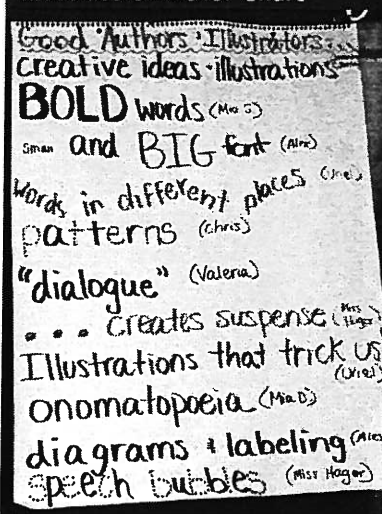 Good Authors · Illustrators...
creative ideas · illustrations
BOLD words (Mia S)
small and BIG font (Alex)
words in different places (Uriel)
patterns (Chris)
"dialogue" (Valeria)
... creates suspense (Miss Hager)
Illustrations that trick us (Uriel)
onomatopoeia (Mia D)
diagrams + labeling (Alex)
speech bubbles (Miss Hager)